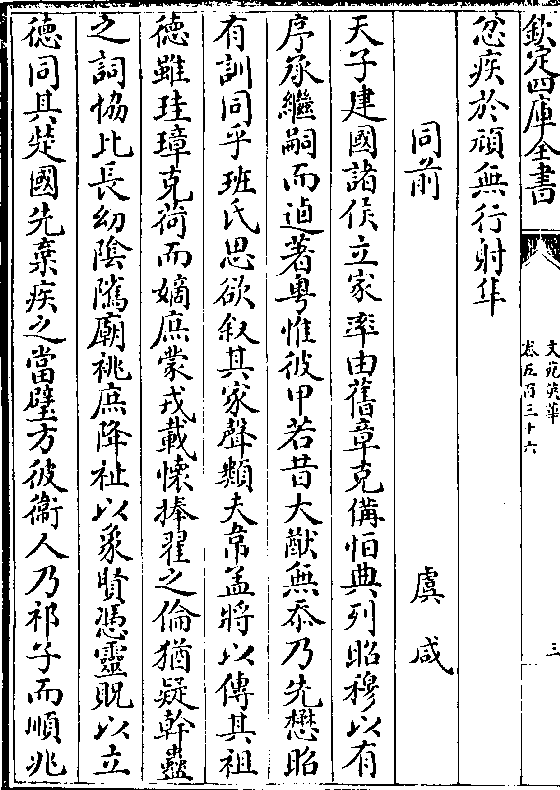 欽定四庫全書
文苑英華
卷五百三十六
三
忿疾於頑無行射隼
同前
虞咸
天子建國諸侯立家率由舊章克備怕典列昭穆以有
序承繼嗣而逌著粤惟彼甲若昔大猷無忝乃先懋昭
有訓同乎班氏思欲叙其家聲類夫韋孟將以傳其祖
德雖珪璋克荷而嫡庶蒙戎載懐捧翟之倫猶疑幹蠱
之詞協比長幼陰隲廟祧庶降祉以象賢憑靈貺以立
德同其楚國先棄疾之當璧方彼衞人乃祁子而順兆